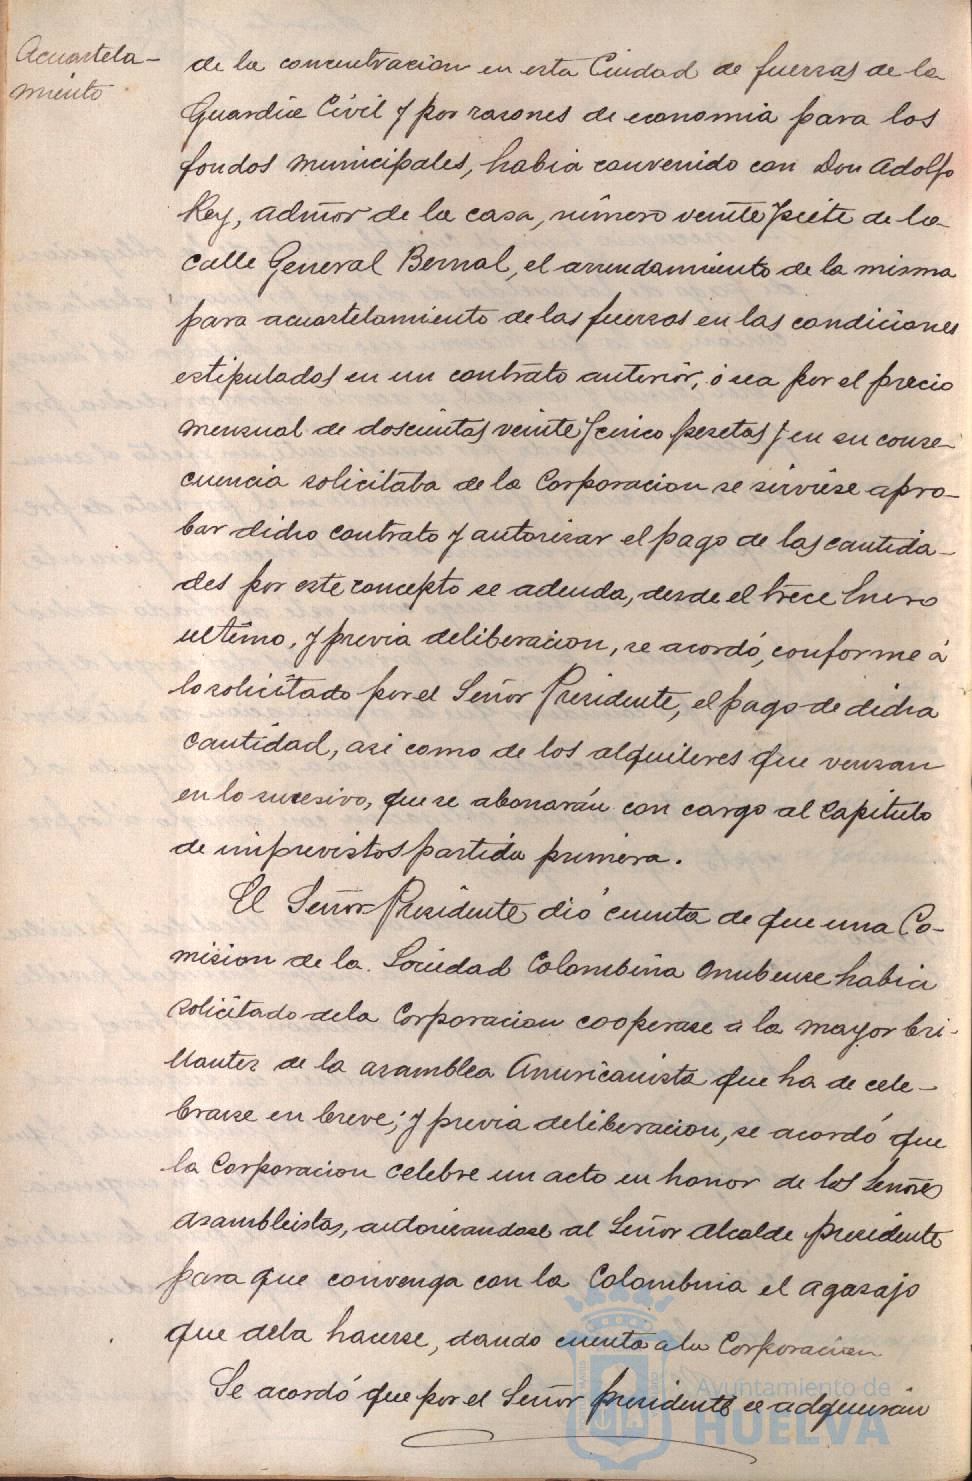 Acuartela-
miento
de la concentracion en esta Ciudad de fuerzas de la
Guardia Civil y por razones de economia para los
fondos municipales, habia convenido con Don Adolfo
Rey, admor de la casa, número veinte y siete de la
calle General Bernal, el arrendamiento de la misma
para acuartelamiento de las fuerzas en las condiciones
estipulados en un contrato anterior, ó sea por el precio
mensual de doscientas veinte y cinco pesetas y en su conse-
cuencia solicitaba de la Corporacion se sirviese apro-
bar dicho contrato y autorizar el pago de las cantida-
des por este concepto se adeuda, desde el trece Enero
ultimo, y previa deliberacion, se acordó, conforme á
lo solicitado por el Señor Presidente, el pago de dicha
cantidad, asi como de los alquileres que venzan
en lo sucesivo, que se abonarán con cargo al Capitulo
de imprevistos partida primera.
El Señor Presidente dió cuenta de que una Co-
mision de la Sociedad Colombina Onubense habia
solicitado de la Corporacion cooperase a la mayor bri-
llantez de la asamblea Americanista que ha de cele-
brarse en breve; y previa deliberacion, se acordó que
la Corporacion celebre un acto en honor de los Señores
asambleistas, autorizandose al Señor Alcalde presidente
para que convenga con la Colombina el agasajo
que deba hacerse, dando cuenta a la Corporacion
Se acordó que por el Señor presidente se adquieran
Ayuntamiento de
HUELVA